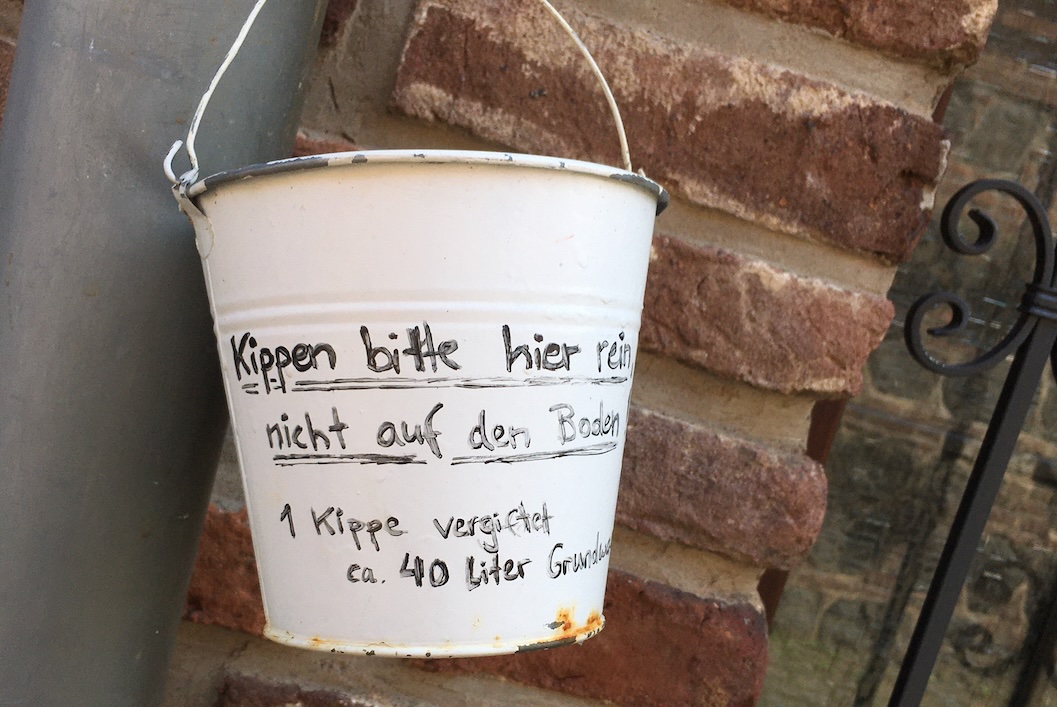 Kippen bitte hier rein,
nicht auf den Boden
1 Kippe vergiftet
ca. 40 Liter